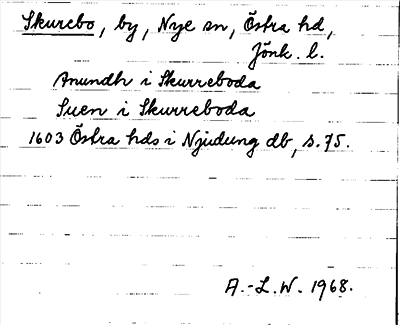 Skurebo, by, Nye sn, Östra hd,
Jönk. l.
Anundh i Skurreboda
Suen i Skurreboda
1603 Östra hds i Njudung db, s. 75.
A.-L.W. 1968.